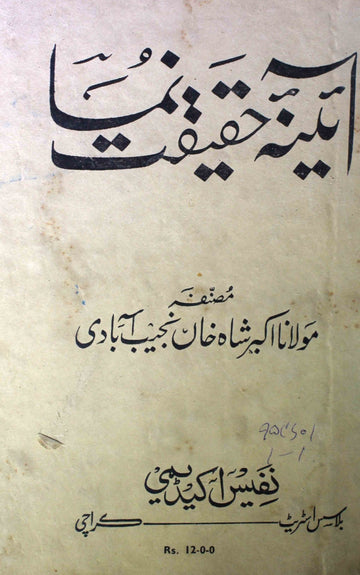 آئینہ حقیقت نما
مصنفہ
مولانا اکبر شاہ خاں نجیب آبادی
نفیس اکیڈیمی
بلاسس اسٹریٹ ــــــ کراچی
Rs. 12-0-0